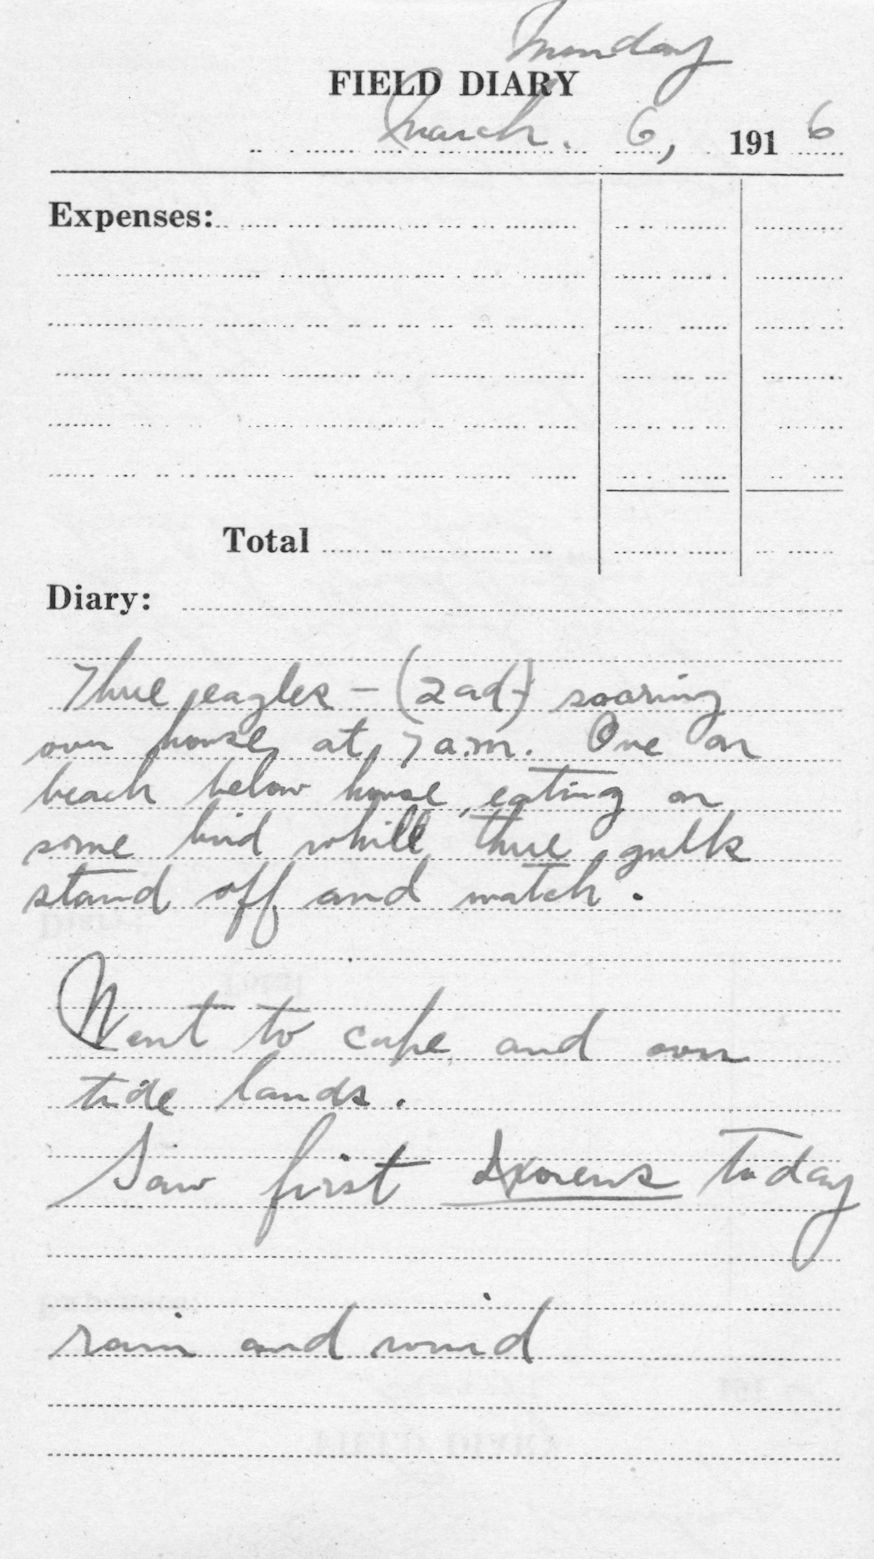 Monday
FIELD DIARY
March. 6, 1916
Expenses:
Total
Diary:
Three eagles - (2 ad) soaring
over house at 7 a.m. One on
beach below house, eating on
some bird while three gulls
stand off and watch.
Went to cape and over
tide lands.
Saw first today
rain and wind